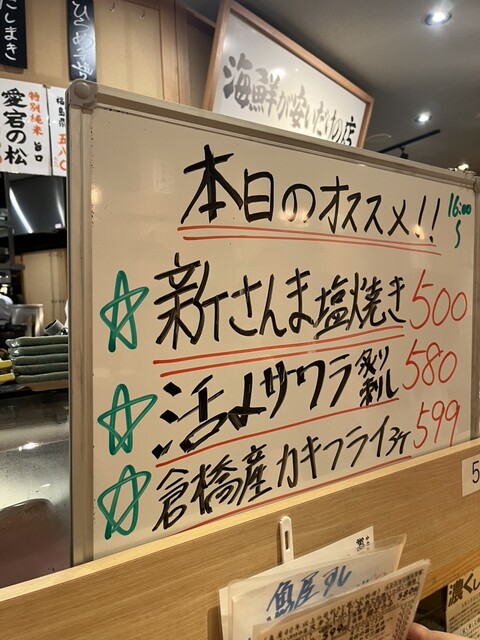 海鮮が安いだけの店
愛宕の松
特別純米 旨口
本日のオススメ!!
16:00〜
☆新さんま塩焼き 500
☆活〆サワラ炙り刺し 580
☆倉橋産カキフライ3ケ 599
魚屋すし